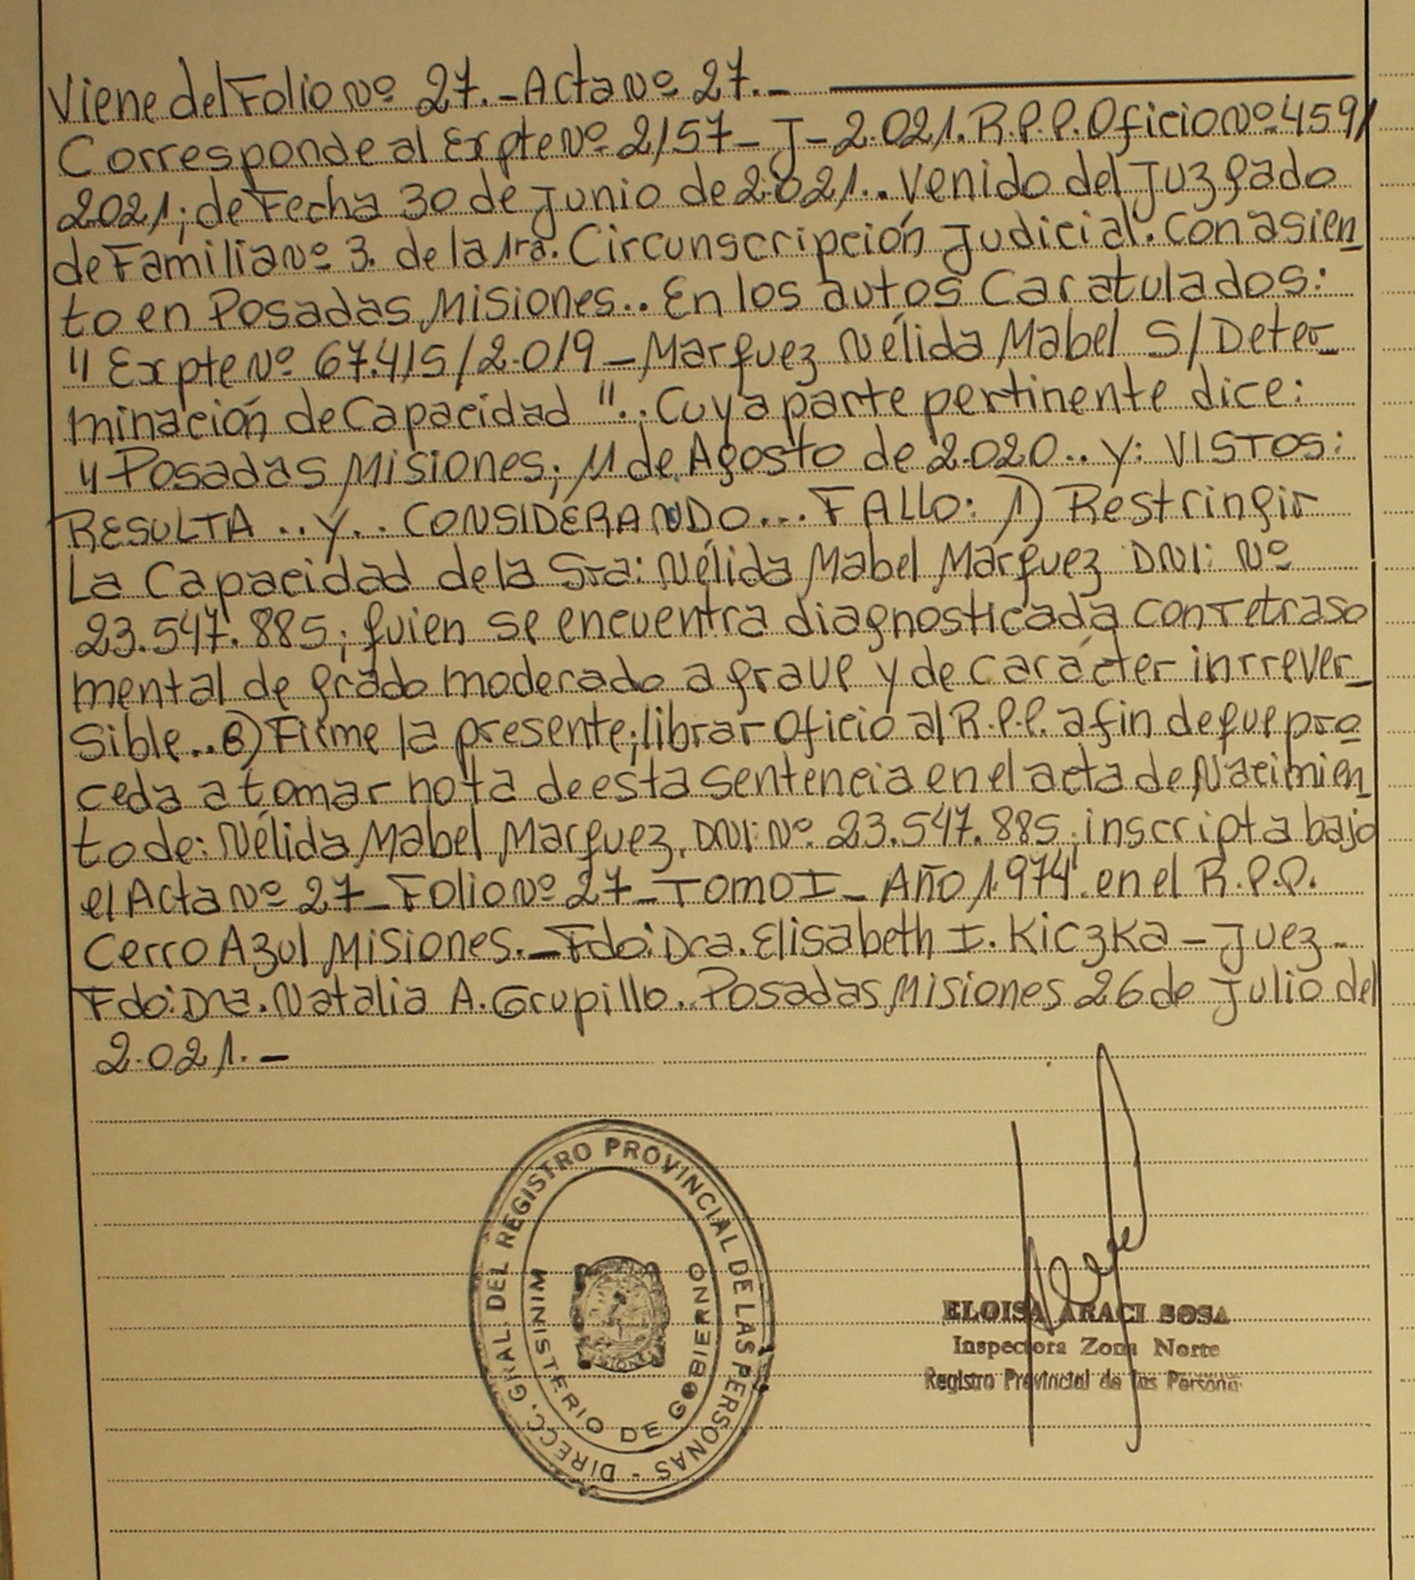 Viene del Folio Nº 27.- Acta Nº 27.-
Corresponde al Expte Nº 2157-J-2.021. R.P.P. Oficio Nº 459/
2021; de Fecha 30 de Junio de 2.021.. Venido del Juzgado
de Familia Nº 3. de la 1ra. Circunscripción Judicial. Con asien_
to en Posadas, Misiones.. En los autos Caratulados:
"Expte Nº 67.415/2.019 - Marquez Nélida Mabel S/ Deter_
minación de Capacidad".; Cuya parte pertinente dice:
"Posadas Misiones; 11 de Agosto de 2.020.. Y: VISTOS:
RESULTA .. Y .. CONSIDERANDO... FALLO: 1) Restringir
La Capacidad de la Sra: Nélida Mabel Márquez DNI: Nº
23.547.885; quien se encuentra diagnosticada con retraso
mental de grado moderado a grave y de carácter inrrever_
sible.. 6) Firme la presente; librar Oficio al R.P.P. a fin de que pro
ceda a tomar nota de esta sentencia en el acta de Nacimien_
to de: Nélida Mabel Marquez, DNI: Nº 23.547.885; inscripta bajo
el Acta Nº 27 - Folio Nº 27 - Tomo I - Año 1.974 en el R.P.P.
Cerro Azul Misiones.- Fdo: Dra. Elisabeth I. Kiczka - Juez -
Fdo: Dra. Natalia A. Grupillo.. Posadas Misiones 26 de Julio del
2.021.-
DIRECC. GRAL. DEL REGISTRO PROVINCIAL DE LAS PERSONAS -
MINISTERIO DE GOBIERNO
ELOISA ARACI SOSA
Inspectora Zona Norte
Registro Provincial de las Persona